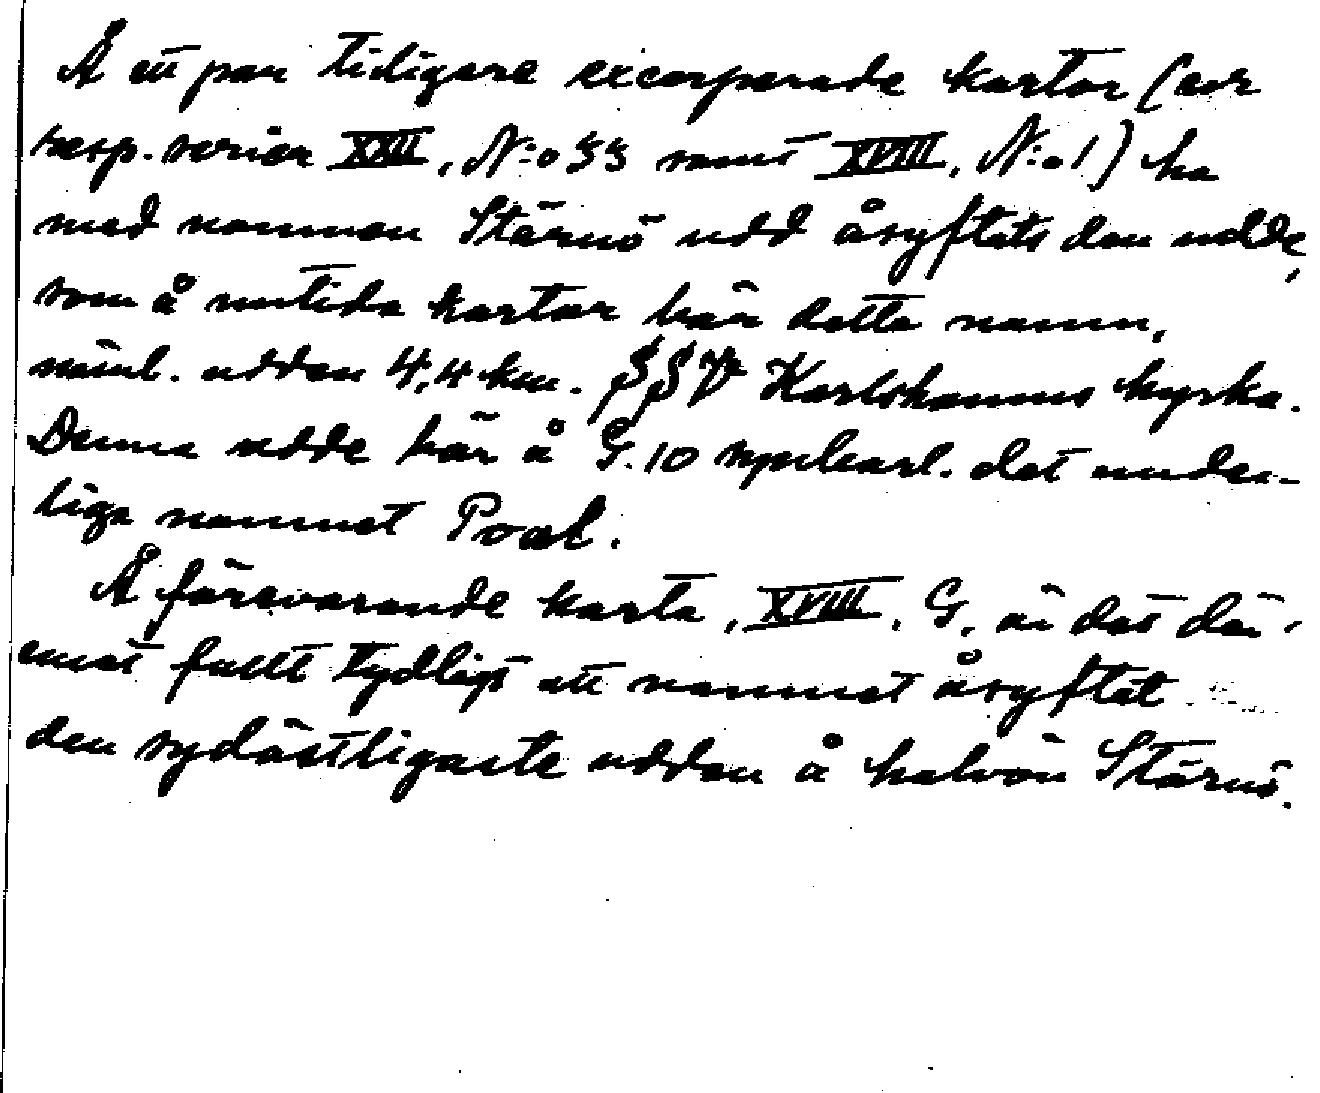 Å ett par tidigare excerperade kartor (ur
resp. serien XXII, N:o 33 samt XVIII, N:o 1) ha
med namnen Stärnö udd åsyftats den udde,
som å nutida kartor bär detta namn,
näml. udden 4,4 km. SSV Karlshamns kyrka.
Denna udde bär å G. 10 spec.karl. det under-
liga namnet Poal.
Å förevarande karta, XVIII. G, är det där-
emot fullt tydligt att namnet åsyftat
den sydöstligaste udden å halvön Stärnö.